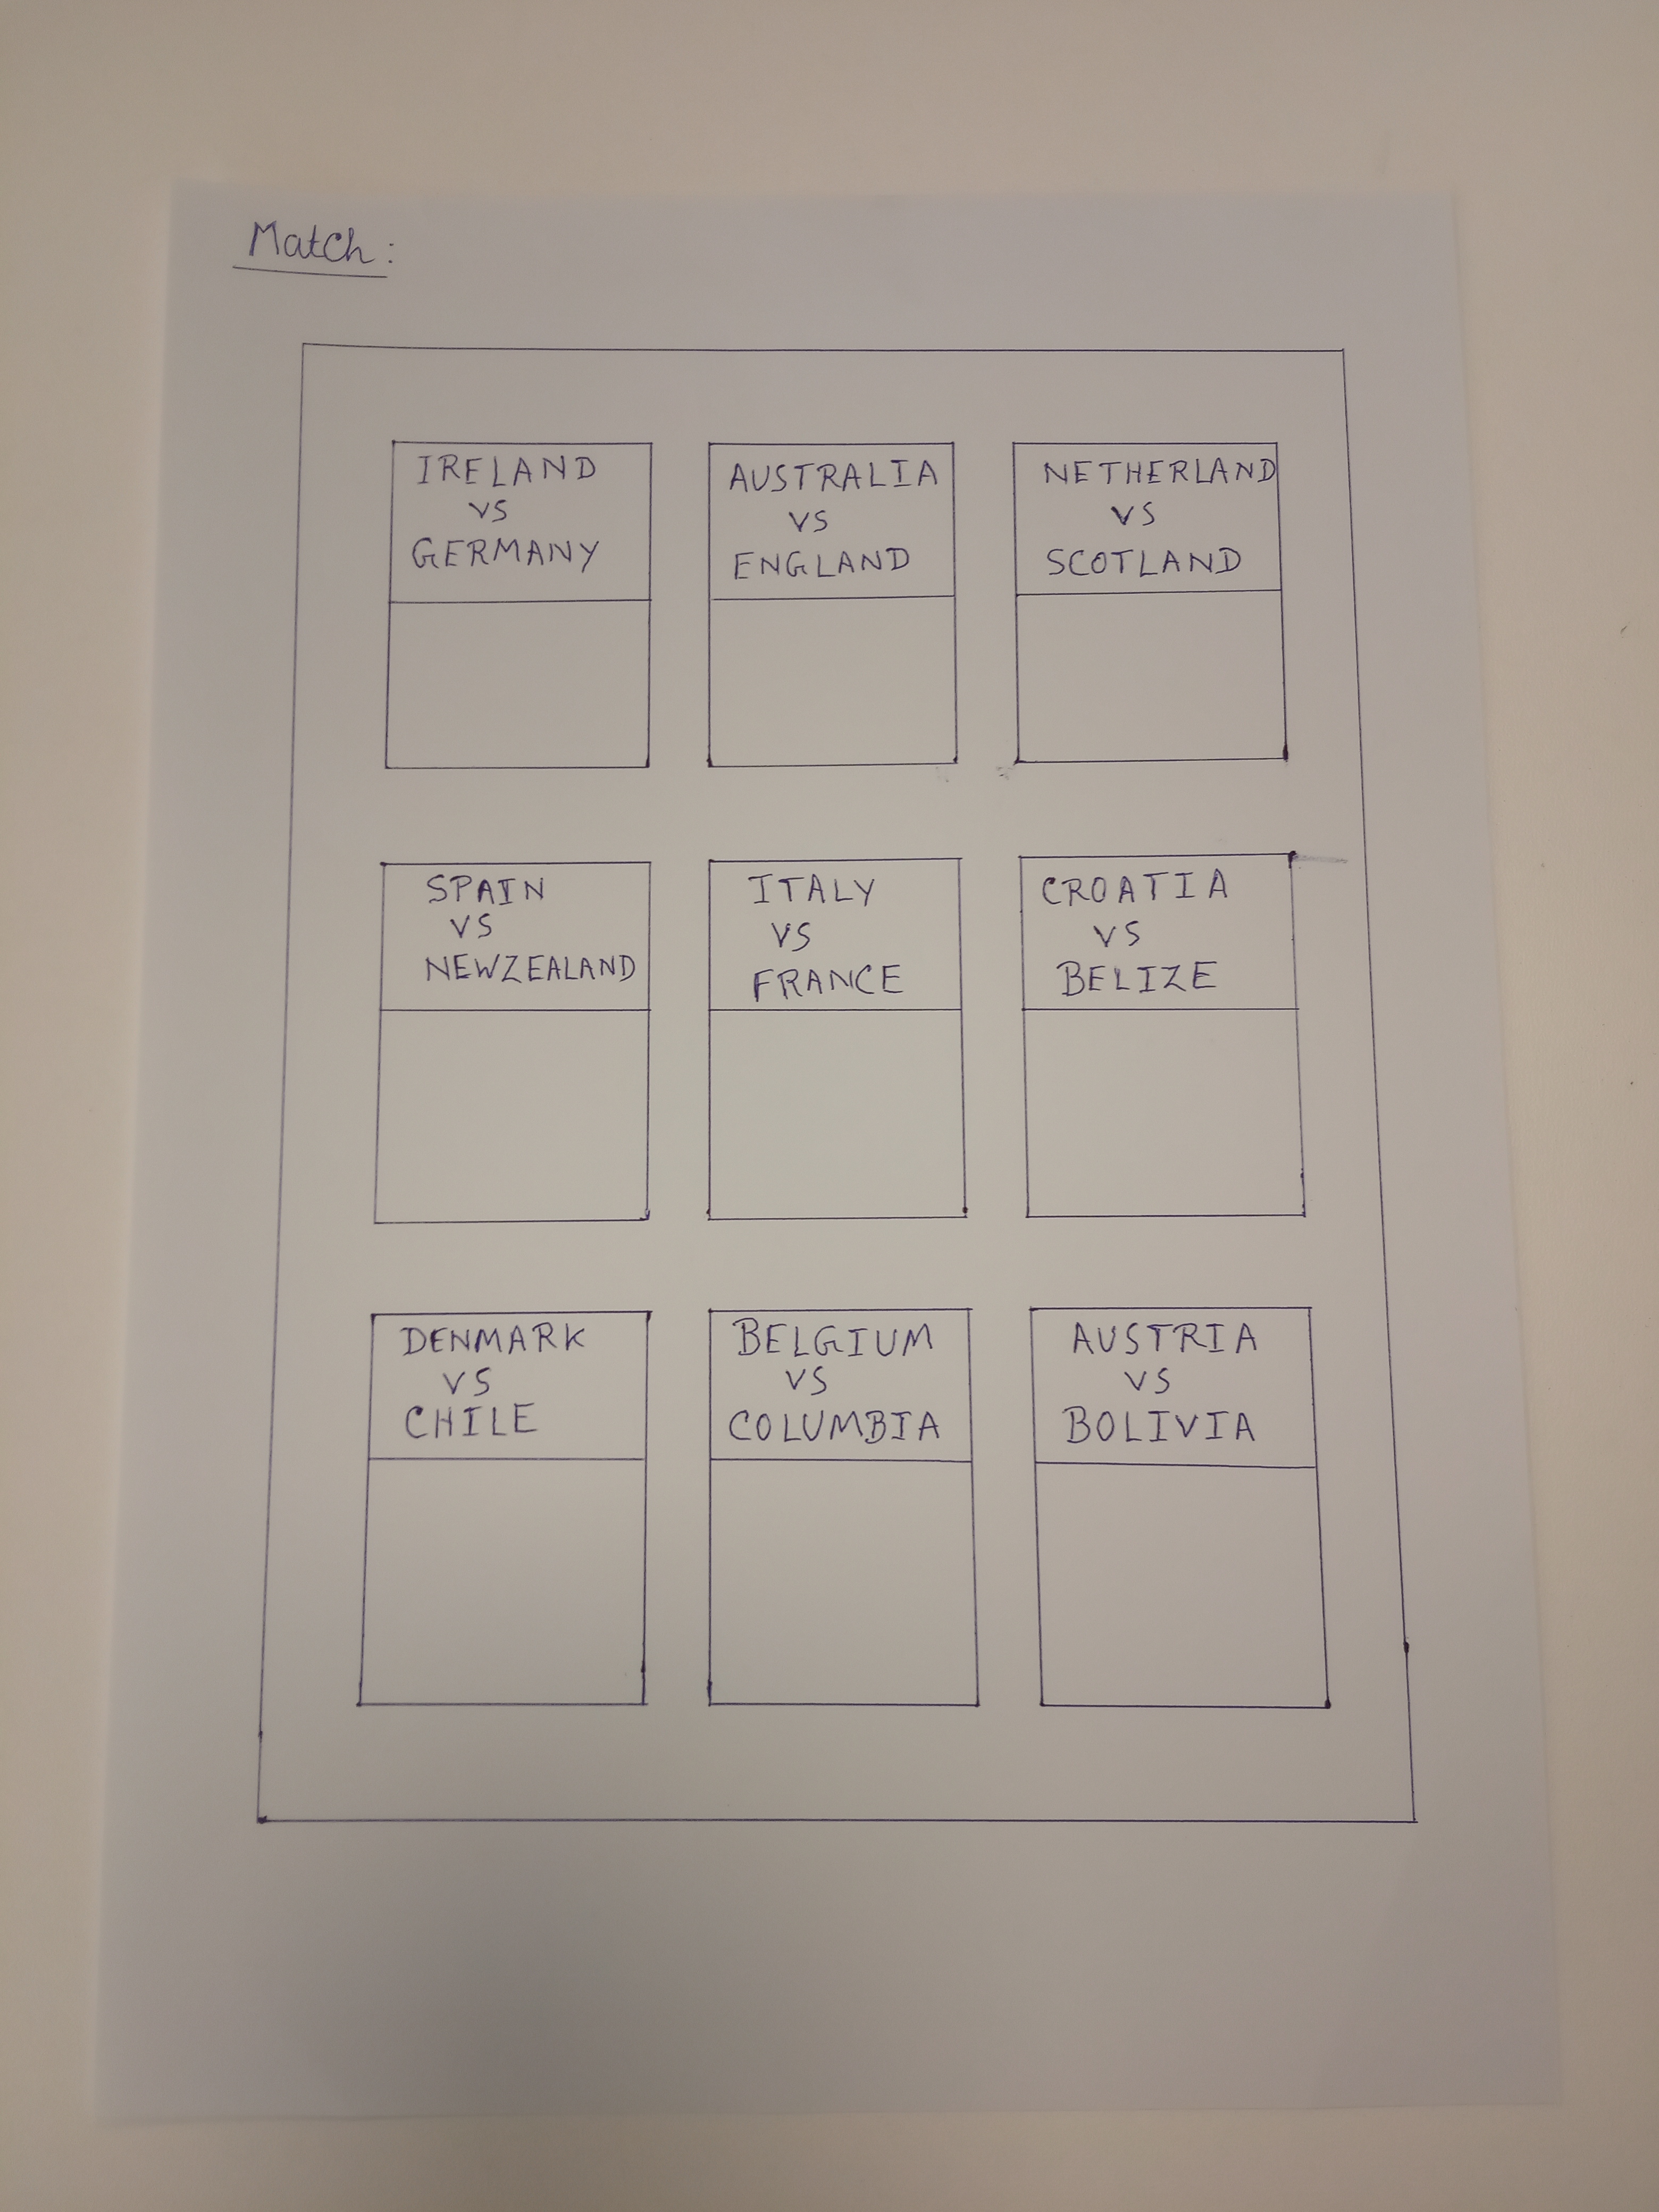 Match:
IRELAND
VS
GERMANY
AUSTRALIA
VS
ENGLAND
NETHERLAND
VS
SCOTLAND
SPAIN
VS
NEWZEALAND
ITALY
VS
FRANCE
CROATIA
VS
BELIZE
DENMARK
VS
CHILE
BELGIUM
VS
COLUMBIA
AUSTRIA
VS
BOLIVIA